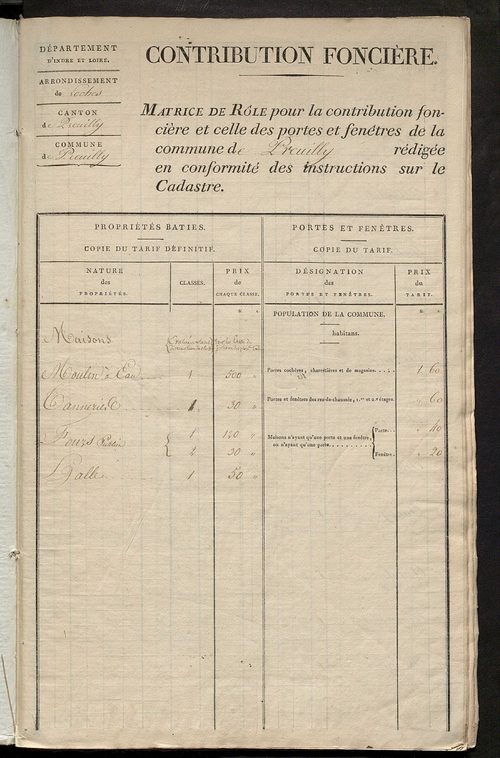 DÉPARTEMENT
D'INDRE ET LOIRE.
ARRONDISSEMENT
de Loches
CANTON
de Preuilly
COMMUNE
de Preuilly
CONTRIBUTION FONCIÈRE.
MATRICE DE RÔLE pour la contribution fon-
cière et celle des portes et fenêtres de la
commune de Preuilly rédigée
en conformité des instructions sur le
Cadastre.
PROPRIÉTÉS BATIES.
COPIE DU TARIF DÉFINITIF.
NATURE
des
PROPRIÉTÉS.
CLASSES.
PRIX
de
CHAQUE CLASSE.
Maisons
Moulin à Eau 1 500 "
Tannerie 1 30 "
Fours 1 120 "
2 30 "
Halle 1 50 "
PORTES ET FENÊTRES.
COPIE DU TARIF.
DÉSIGNATION
des
PORTES ET FENÊTRES.
PRIX
du
TARIF.
POPULATION DE LA COMMUNE.
habitans.
Portes cochères, charretières et de magasins. 1 60
Portes et fenêtres des rez-de-chaussée, 1.er et 2.e étages. " 60
Maisons n'ayant qu'une porte et une fenêtre,
ou n'ayant qu'une porte.
Porte. " 40
Fenêtre. " 20